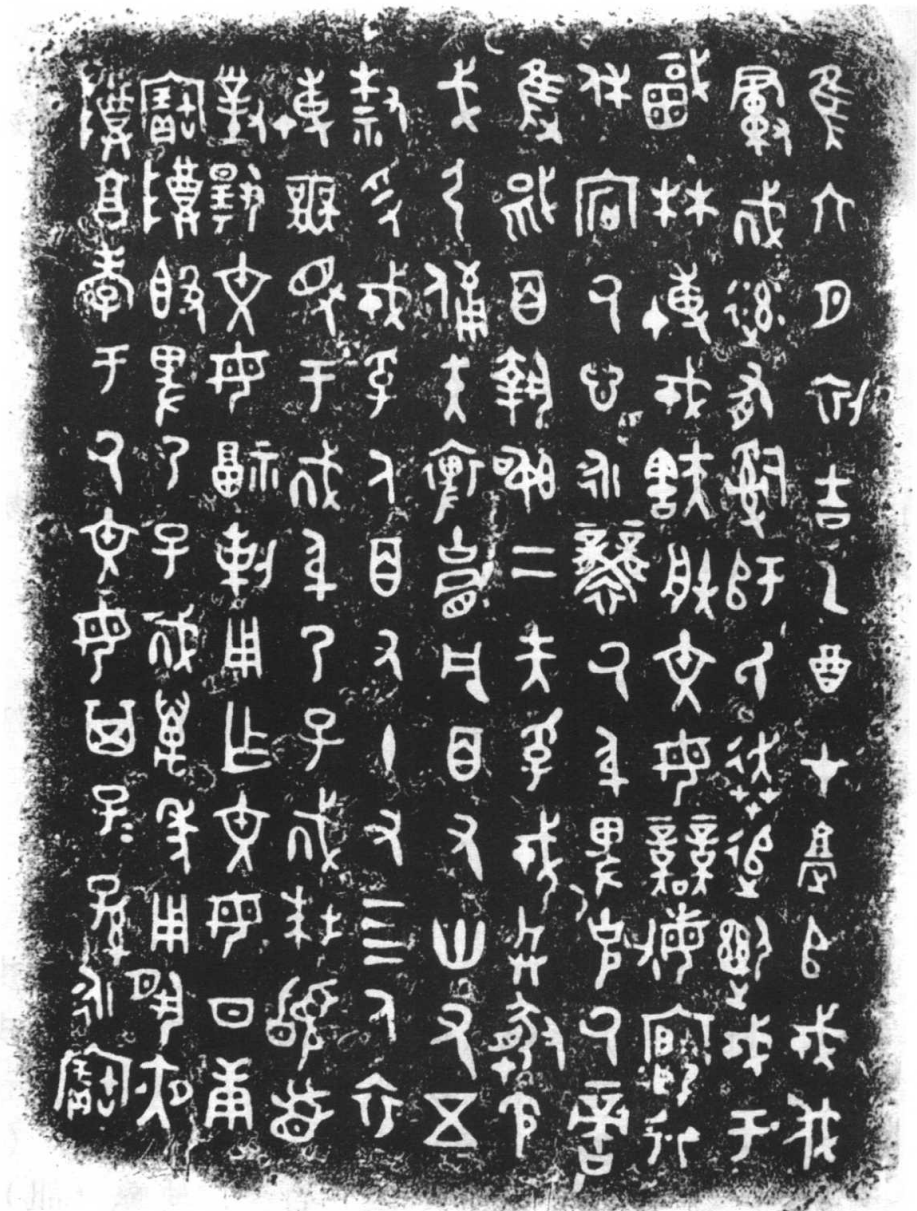 隹六月初吉乙酉才師戎伐
𢦚率有𤔲師氏奔追戎于
棫林博戎㝬朕文母競敏行
休宕厥心永襲厥身卑克厥啻
隻馘百執訊二夫孚戎兵盾矛
戈弓備矢裨胄凡百又卅又五
捋戎孚人百又十又四人衣
博無眈于𢦚身乃子𢦚拜稽首
對揚文母福剌用乍文母日庚
寶尊簋卑乃子𢦚萬年用夙夜
尊享孝于厥文母其子子孫孫永寶